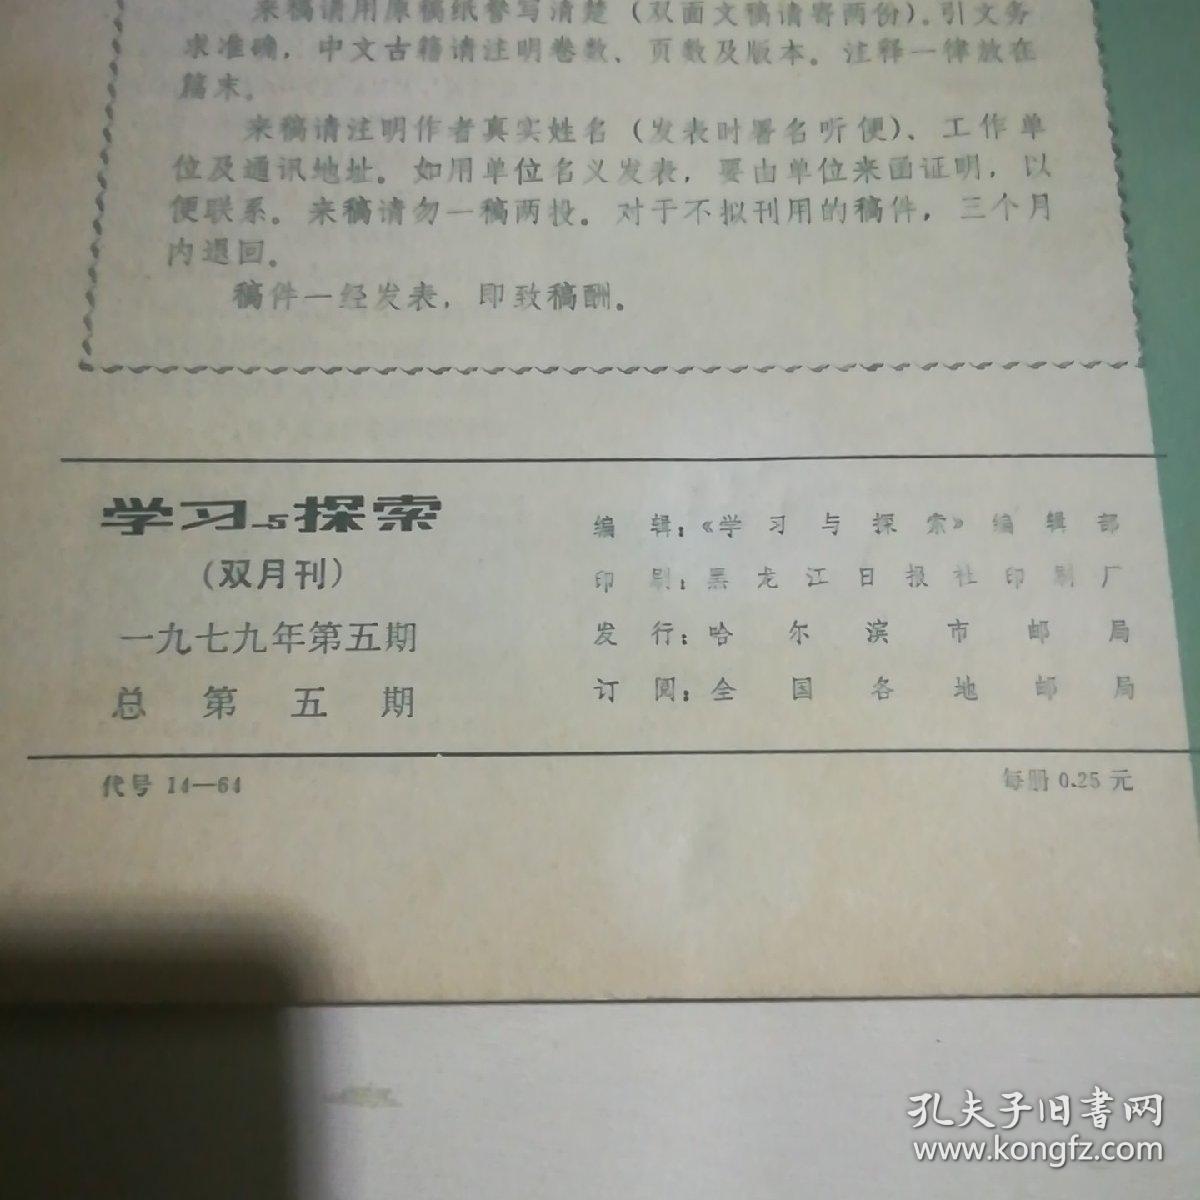 来稿请用原稿纸誊写清楚（双面文稿请寄两份）。引文务
求准确，中文古籍请注明卷数、页数及版本。注释一律放在
篇末。
来稿请注明作者真实姓名（发表时署名听便）、工作单
位及通讯地址。如用单位名义发表，要由单位来函证明，以
便联系。来稿请勿一稿两投。对于不拟刊用的稿件，三个月
内退回。
稿件一经发表，即致稿酬。
学习与探索
（双月刊）
一九七九年第五期
总第五期
编辑：《学习与探索》编辑部
印刷：黑龙江日报社印刷厂
发行：哈尔滨市邮局
订阅：全国各地邮局
代号 14—64
每册 0.25 元
孔夫子旧书网
www.kongfz.com